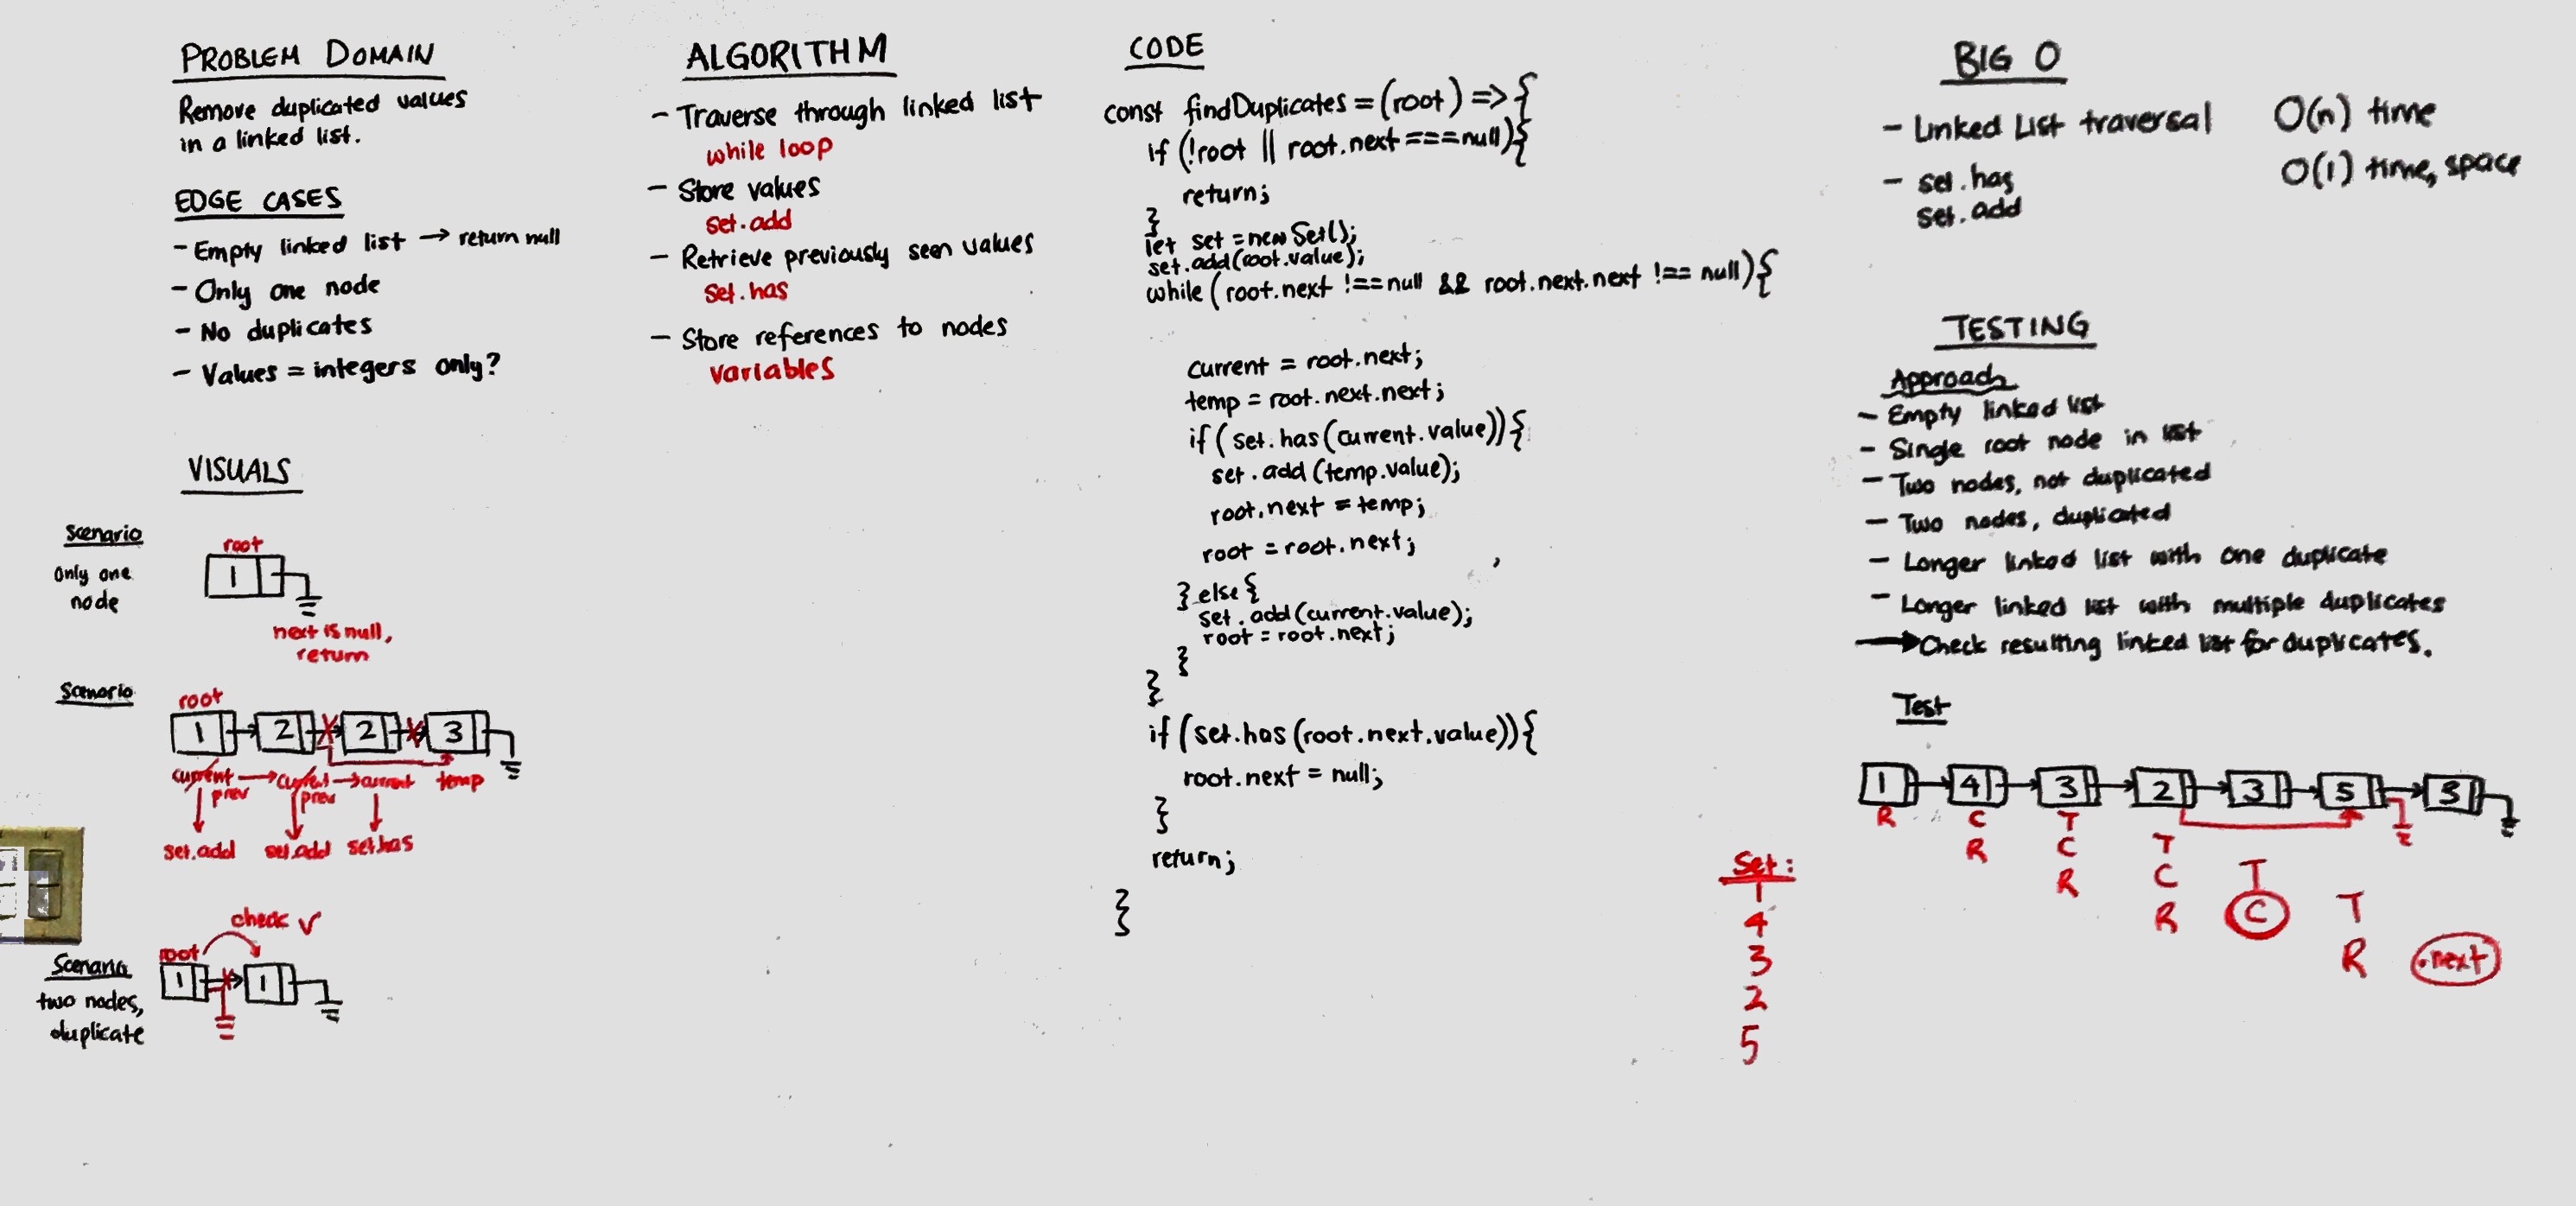 PROBLEM DOMAIN
Remove duplicated values
in a linked list.
EDGE CASES
- Empty linked list → return null
- Only one node
- No duplicates
- Values = integers only?
VISUALS
Scenario
only one
node
root
1
next is null,
return
Scenario
root
1 2 2 3
current → current → current temp
prev prev
set.add set.add set.has
Scenario
two nodes,
duplicate
check √
root
1 1
ALGORITHM
- Traverse through linked list
while loop
- Store values
set.add
- Retrieve previously seen values
set.has
- Store references to nodes
variables
CODE
const findDuplicates = (root) => {
if (!root || root.next === null){
return;
}
let set = new Set();
set.add(root.value);
while (root.next !== null && root.next.next !== null){
current = root.next;
temp = root.next.next;
if (set.has(current.value)){
set.add(temp.value);
root.next = temp;
root = root.next;
} else {
set.add(current.value);
root = root.next;
}
}
if (set.has(root.next.value)){
root.next = null;
}
return;
}
BIG O
- Linked List traversal O(n) time
- set.has O(1) time, space
set.add
TESTING
Approach
- Empty linked list
- Single root node in list
- Two nodes, not duplicated
- Two nodes, duplicated
- Longer linked list with one duplicate
- Longer linked list with multiple duplicates
→ Check resulting linked list for duplicates.
Test
1 4 3 2 3 5 5
R C T
R C T
R C T
R C T
R .next
Set:
1
4
3
2
5